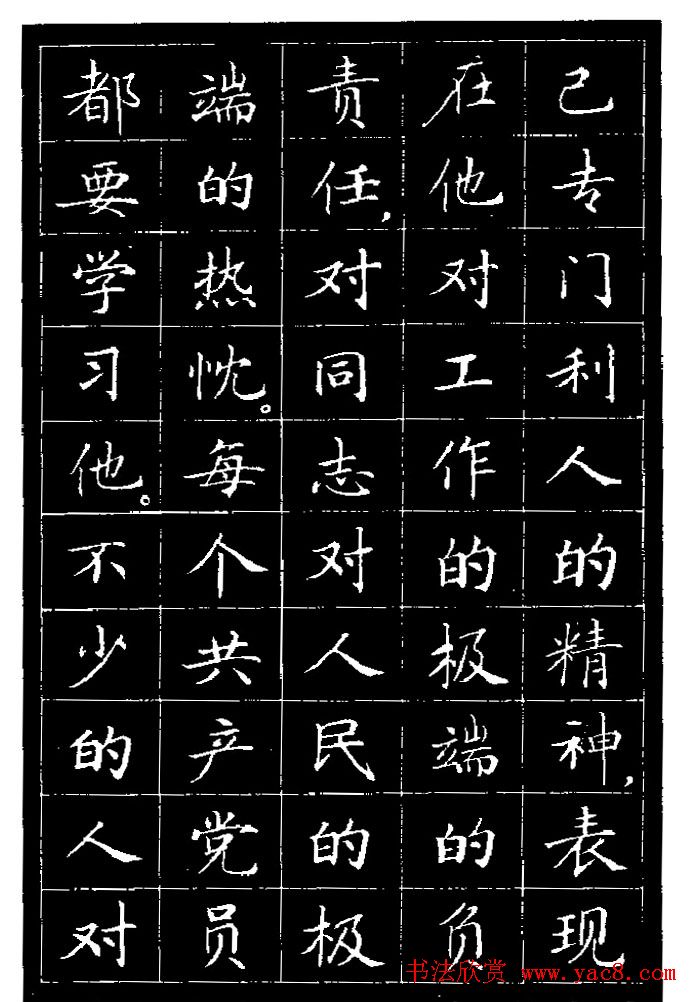 己专门利人的精神，表现
在他对工作的极端的负
责任，对同志对人民的极
端的热忱。每个共产党员
都要学习他。不少的人对
书法欣赏 www.yac8.com